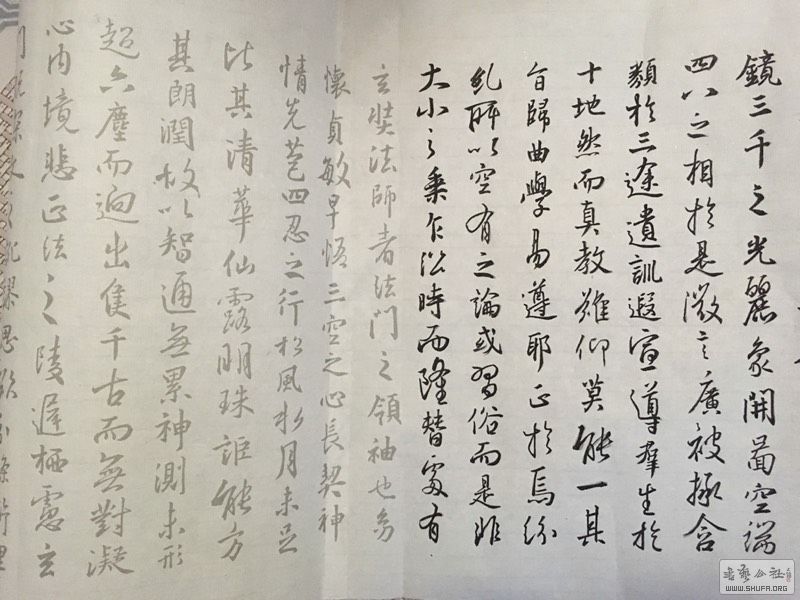 鏡三千之光麗象開啚空端
四八之相於是微言廣被拯含
類於三途遺訓遐宣導羣生於
十地然而真教難仰莫能一其
旨歸曲學易遵耶正於焉紛
糺所以空有之論或習俗而是非
大小之乘乍沿時而隆替有
玄奘法師者法門之領袖也幼
懷貞敏早悟三空之心長契神
情先苞四忍之行松風水月未足
比其清華仙露明珠詎能方
其朗潤故以智通無累神測未形
超六塵而迥出隻千古而無對凝
心內境悲正法之陵遲栖慮玄
門
WWW.SHUFA.ORG